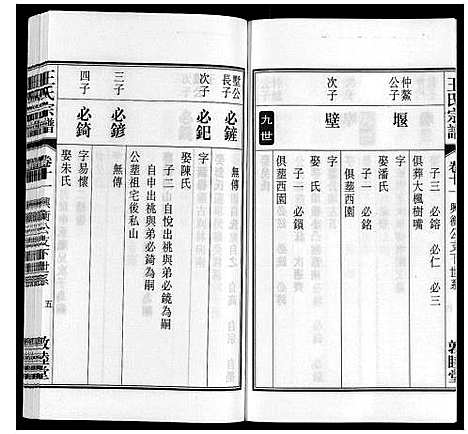 王氏宗譜
卷十一 興衡公支下世系
敦睦堂
俱葬大楓樹嘴
子三 必鎔 必仁 必三
仲鰲公子 堰
娶潘氏
子一 必銘
俱墓西園
次子 壁
字
子一 必鎖
俱墓西園
九世
墅公長子 必鏟
無傳
次子 必鈀
字
娶陳氏
子二 自悅出桃與弟必鏡為嗣
自申出桃與弟必錡為嗣
公墓祖宅後私山
三子 必鍌
無傳
四子 必錡
字易懷
娶朱氏
王氏宗譜
卷十一 興衡公支下世系 五
敦睦堂